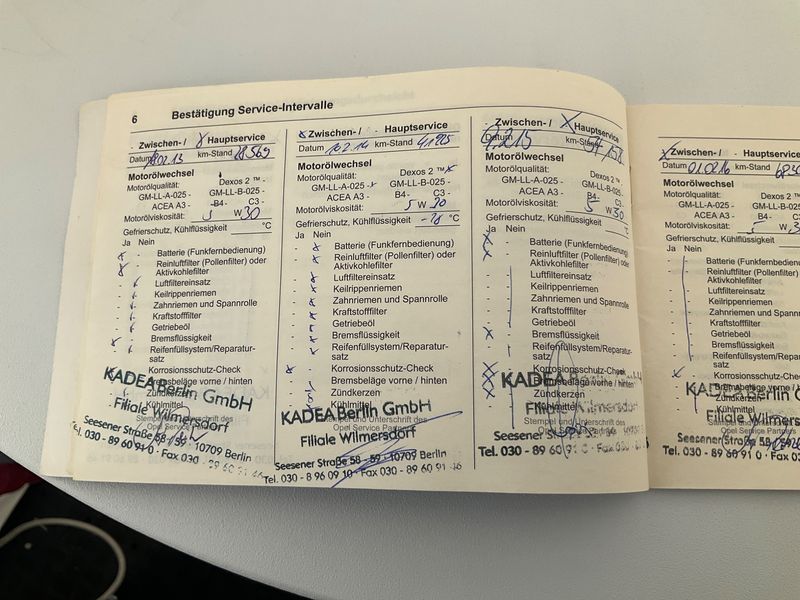 6 Bestätigung Service-Intervalle
- Zwischen-/ X Hauptservice
Datum 02.13 km-Stand 28.569
Motorölwechsel
Motorölqualität: Dexos 2 ™ -
GM-LL-A-025 - GM-LL-B-025 -
ACEA A3 - B4 - C3 -
Motorölviskosität: 5 W 30
Gefrierschutz, Kühlflüssigkeit °C
Ja Nein
Batterie (Funkfernbedienung)
Reinluftfilter (Pollenfilter) oder
Aktivkohlefilter
Luftfiltereinsatz
Keilrippenriemen
Zahnriemen und Spannrolle
Kraftstofffilter
Getriebeöl
Bremsflüssigkeit
Reifenfüllsystem/Reparatur-
satz
Korrosionsschutz-Check
Bremsbeläge vorne / hinten
Zündkerzen
Kühlmittel
KADEA Berlin GmbH
Filiale Wilmersdorf
Seesener Straße 58 - 59 · 10709 Berlin
Tel. 030 - 89 60 91 0 · Fax 030 - 89 60 91 46
X Zwischen-/ - Hauptservice
Datum 10.2.14 km-Stand 41.925
Motorölwechsel
Motorölqualität: Dexos 2 ™ X
GM-LL-A-025 - GM-LL-B-025 -
ACEA A3 - B4 - C3 -
Motorölviskosität: 5 W 30
Gefrierschutz, Kühlflüssigkeit -28 °C
Ja Nein
Batterie (Funkfernbedienung)
Reinluftfilter (Pollenfilter) oder
Aktivkohlefilter
Luftfiltereinsatz
Keilrippenriemen
Zahnriemen und Spannrolle
Kraftstofffilter
Getriebeöl
Bremsflüssigkeit
Reifenfüllsystem/Reparatur-
satz
Korrosionsschutz-Check
Bremsbeläge vorne / hinten
Zündkerzen
Kühlmittel
KADEA Berlin GmbH
Stempel und Unterschrift des
Filiale Wilmersdorf
Seesener Straße 58 - 59 · 10709 Berlin
Tel. 030 - 8 96 09 10 · Fax 030 - 89 60 91 46
- Zwischen-/ X Hauptservice
Datum 9.2.15 km-Stand 57.158
Motorölwechsel
Motorölqualität: Dexos 2 ™ -
GM-LL-A-025 - GM-LL-B-025 -
ACEA A3 - B4 - C3 -
Motorölviskosität: 5 W 30
Gefrierschutz, Kühlflüssigkeit
Ja Nein
Batterie (Funkfernbedienung)
Reinluftfilter (Pollenfilter) oder
Aktivkohlefilter
Luftfiltereinsatz
Keilrippenriemen
Zahnriemen und Spannrolle
Kraftstofffilter
Getriebeöl
Bremsflüssigkeit
Reifenfüllsystem/Reparatur-
satz
Korrosionsschutz-Check
Bremsbeläge vorne / hinten
Zündkerzen
Kühlmittel
KADEA
Filiale Wilmersdorf
Stempel und Unterschrift des
Opel Service Partners
Seesener Straße
Tel. 030 - 89 60 91 0 · Fax 030 - 89 60 91
X Zwischen-/ - Hauptservice
Datum 01.02.16 km-Stand
Motorölwechsel
Motorölqualität: Dexos 2 ™
GM-LL-A-025 - GM-LL-B-025
ACEA A3 - B4 - C3
Motorölviskosität: 5 W
Gefrierschutz, Kühlflüssigkeit
Ja Nein
Batterie (Funkfernbedienung)
Reinluftfilter (Pollenfilter) oder
Aktivkohlefilter
Luftfiltereinsatz
Keilrippenriemen
Zahnriemen und Spannrolle
Kraftstofffilter
Getriebeöl
Bremsflüssigkeit
Reifenfüllsystem/Reparatur-
satz
Korrosionsschutz-Check
Bremsbeläge vorne / hinten
Zündkerzen
Kühlmittel
KADEA Berlin
Filiale Wilmersdorf
Opel Service Partners
Seesener Straße 58
Tel. 030 - 89 60 91 0 · Fax 030 - 89